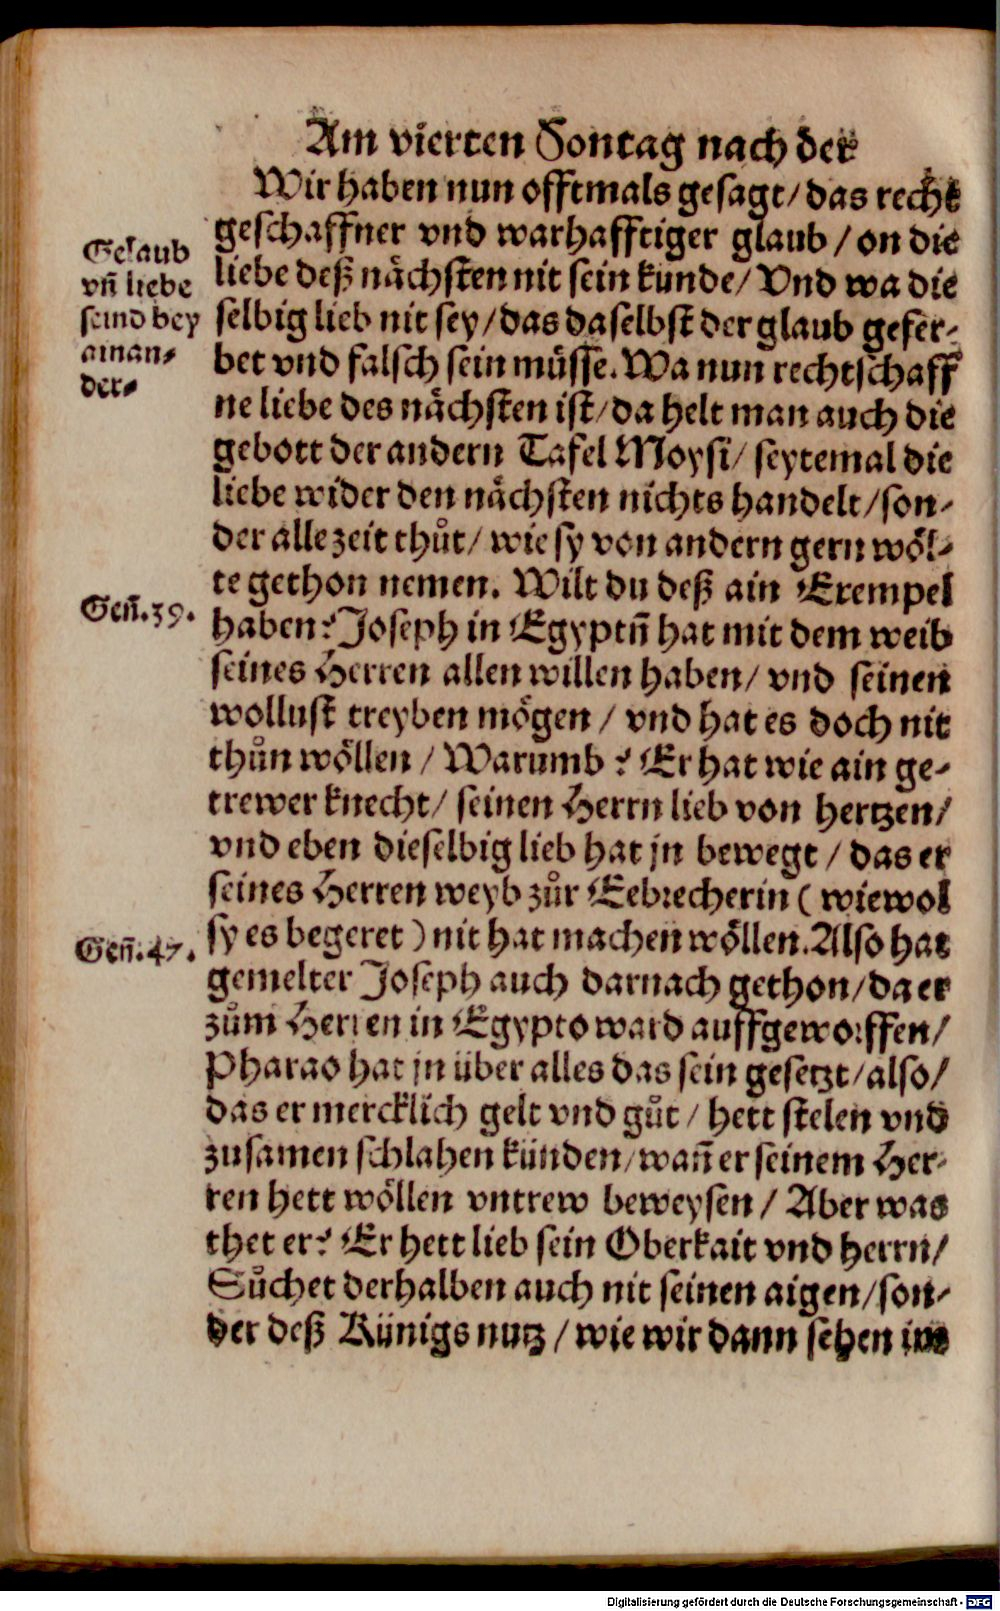 Am vierten Sontag nach der
Wir haben nun offtmals gesagt/ das recht
geschaffner vnd warhafftiger glaub / on die
liebe deß nächsten nit sein kunde/ Vnd wa die
selbig lieb nit sey/ das daselbst der glaub gefer-
bet vnd falsch sein müsse. Wa nun rechtschaff
ne liebe des nächsten ist/ da helt man auch die
gebott der andern Tafel Moysi/ seytemal die
liebe wider den nächsten nichts handelt/ son-
der alle zeit thůt/ wie sy von andern gern wöl-
te gethon nemen. Wilt du deß ain Exempel
haben? Joseph in Egyptñ hat mit dem weib
seines Herren allen willen haben/ vnd seinen
wollust treyben mögen / vnd hat es doch nit
thůn wöllen / Warumb ? Er hat wie ain ge-
trewer knecht/ seinen Herrn lieb von hertzen/
vnd eben dieselbig lieb hat jn bewegt / das er
seines Herren weyb zůr Eebrecherin ( wiewol
sy es begeret ) nit hat machen wöllen. Also hat
gemelter Joseph auch darnach gethon/ da er
zům Herren in Egypto ward auffgeworffen/
Pharao hat jn über alles das sein gesetzt/ also/
das er mercklich gelt vnd gůt / hett stelen vnd
zusamen schlahen künden/ wañ er seinem Her-
ren hett wöllen vntrew beweysen / Aber was
thet er? Er hett lieb sein Oberkait vnd herrn/
Sůchet derhalben auch nit seinen aigen/ son-
der deß Künigs nutz / wie wir dann sehen im
Gelaub
vñ liebe
seind bey
ainan-
der-
Geñ.39.
Geñ.47.
Digitalisierung gefördert durch die Deutsche Forschungsgemeinschaft - DFG